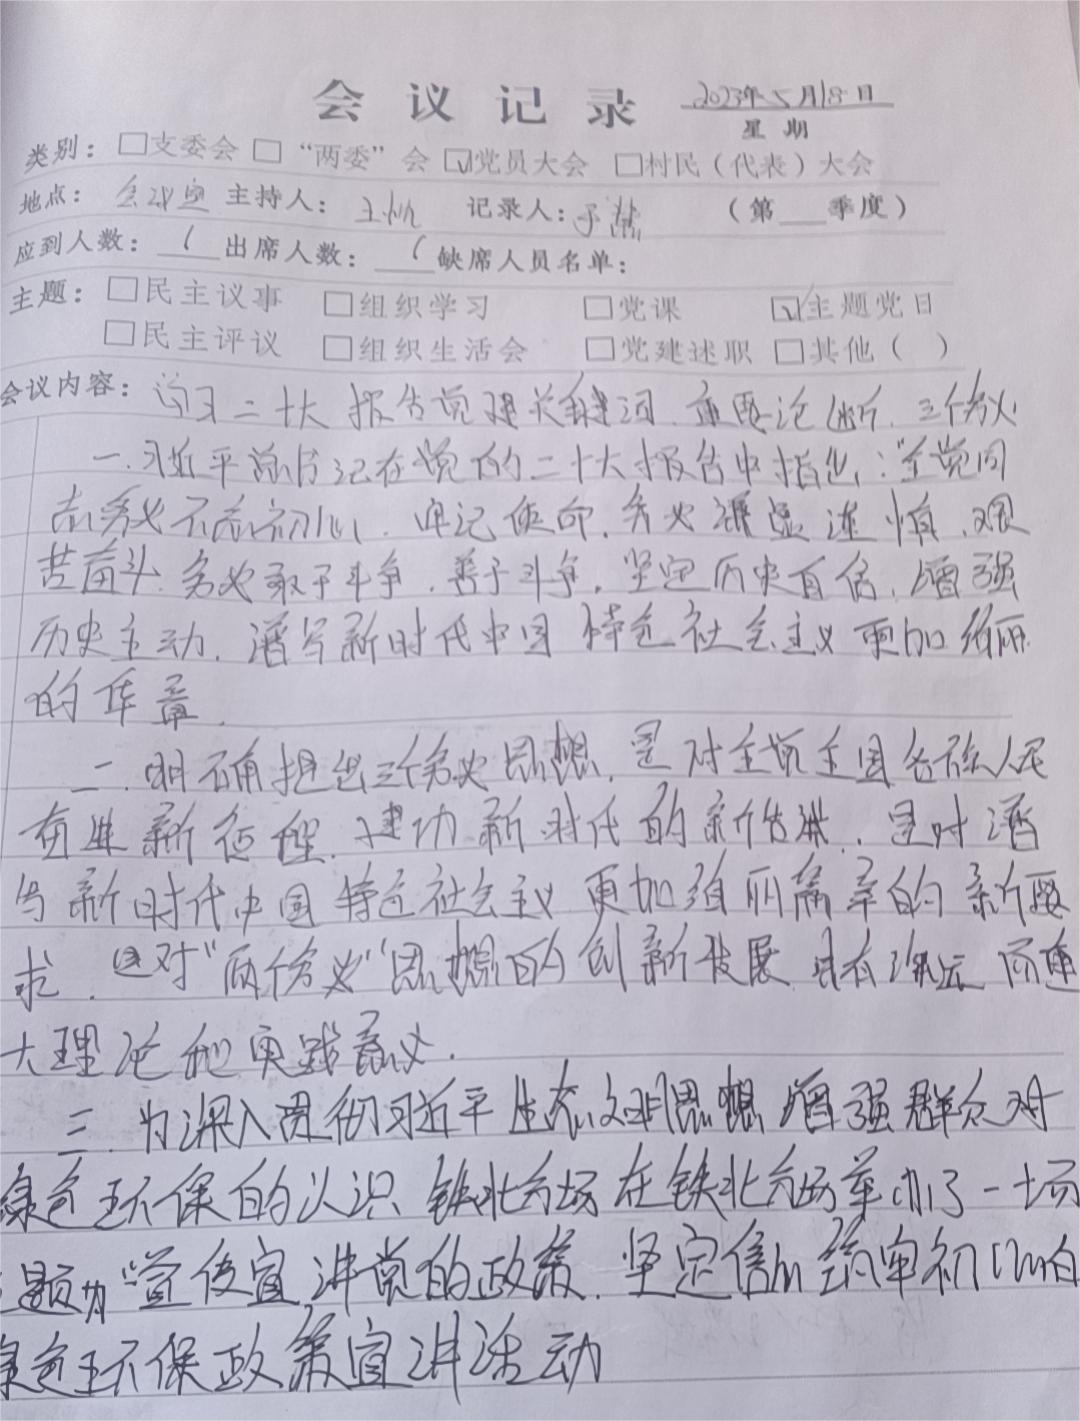 会议记录 2023年5月18日
星期
类别：□支委会 □“两委”会 ☑党员大会 □村民（代表）大会
地点：会议室 主持人：王帆 记录人：于 （第 季度）
应到人数： 出席人数： 缺席人员名单：
主题：□民主议事 □组织学习 □党课 ☑主题党日
□民主评议 □组织生活会 □党建述职 □其他（ ）
会议内容：学习二十大报告党建关键词．重要论断．三个务必
一．习近平总书记在党的二十大报告中指出：“全党同
志务必不忘初心．牢记使命．务必谦虚谨慎．艰
苦奋斗．务必敢于斗争．善于斗争．坚定历史自信．增强
历史主动．谱写新时代中国特色社会主义更加绚丽
的华章．
二．明确提出三个务必思想．是对全党全国各族人民
奋进新征程．建功新时代的新告诫．是对谱
写新时代中国特色社会主义更加绚丽篇章的新要
求．是对“两个务必”思想的创新发展．具有深远而重
大理论和实践意义．
三．为深入贯彻习近平生态文明思想 增强群众对
绿色环保的认识 铁北台场在铁北台场举办了一场
主题为“宣传宣讲党的政策．坚定信心 筑牢初心的
绿色环保政策宣讲活动